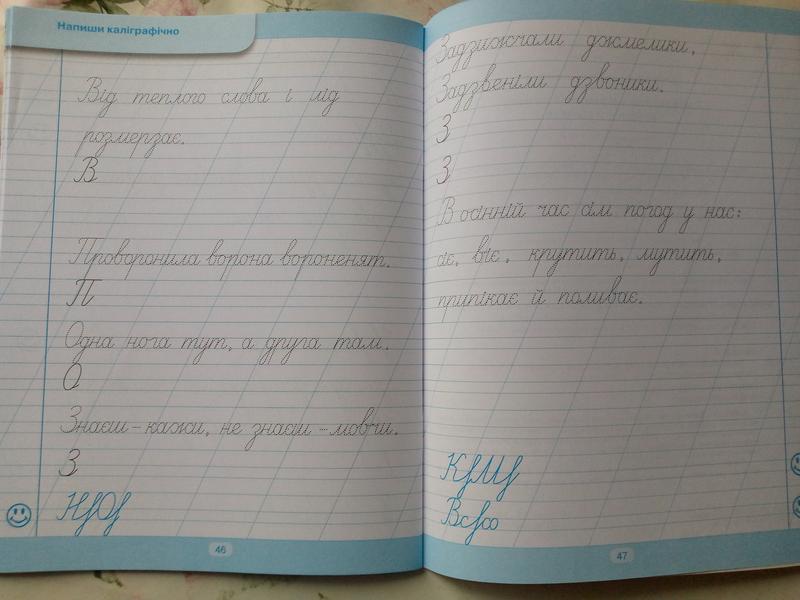 Напиши каліграфічно
Від теплого слова і лід
розмерзає.
В
Проворонила ворона вороненят.
П
Одна нога тут, а друга там.
О
Знаєш – кажи, не знаєш – мовчи.
З
46
Задзижчали джмелики,
Задзвеніли дзвоники.
З
З
В осінній час сім погод у нас:
сіє, віє, крутить, мутить,
припікає й поливає.
47